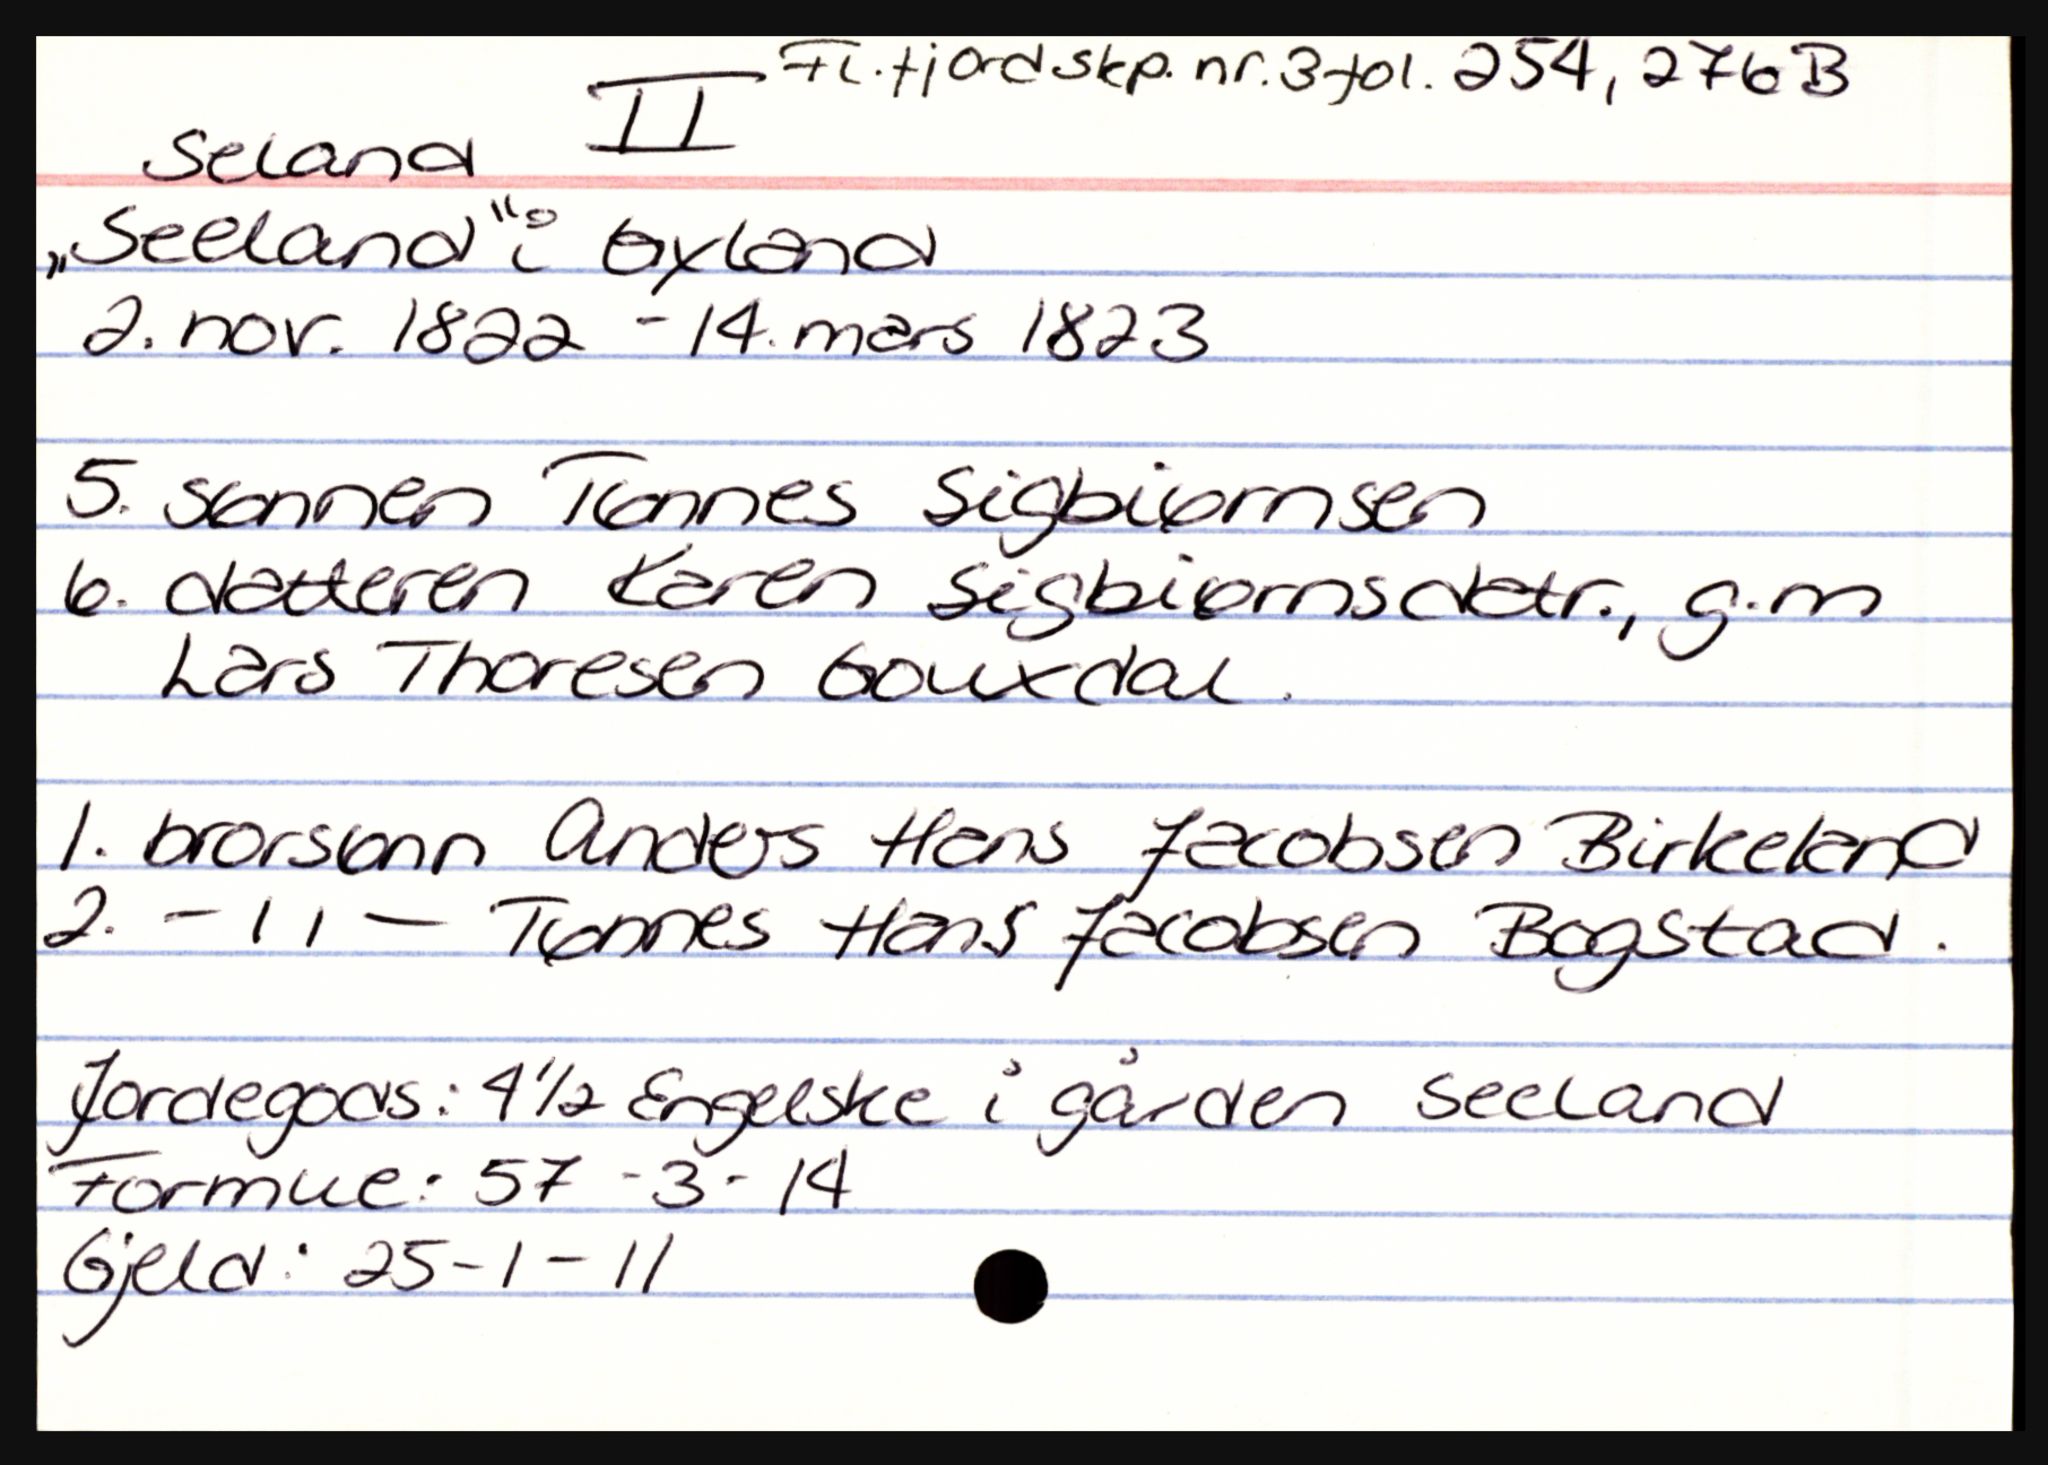 Fl.fjord skp. nr. 3 fol. 254, 276B
II
Seland
„Seeland" i Gyland
2. nov. 1822 - 14. mars 1823
5. sønnen Tønnes Sigbiørnsen
6. datteren Karen Sigbiørnsdatr., g.m
Lars Thoresen Gouxdal.
1. brorsønn Anders Hans Jacobsen Birkeland
2. -11- Tønnes Hans Jacobsen Bogstad.
Jordegods: 4 1/2 Engelske i gården Seeland
Formue: 57 - 3 - 14
Gjeld: 25 - 1 - 11